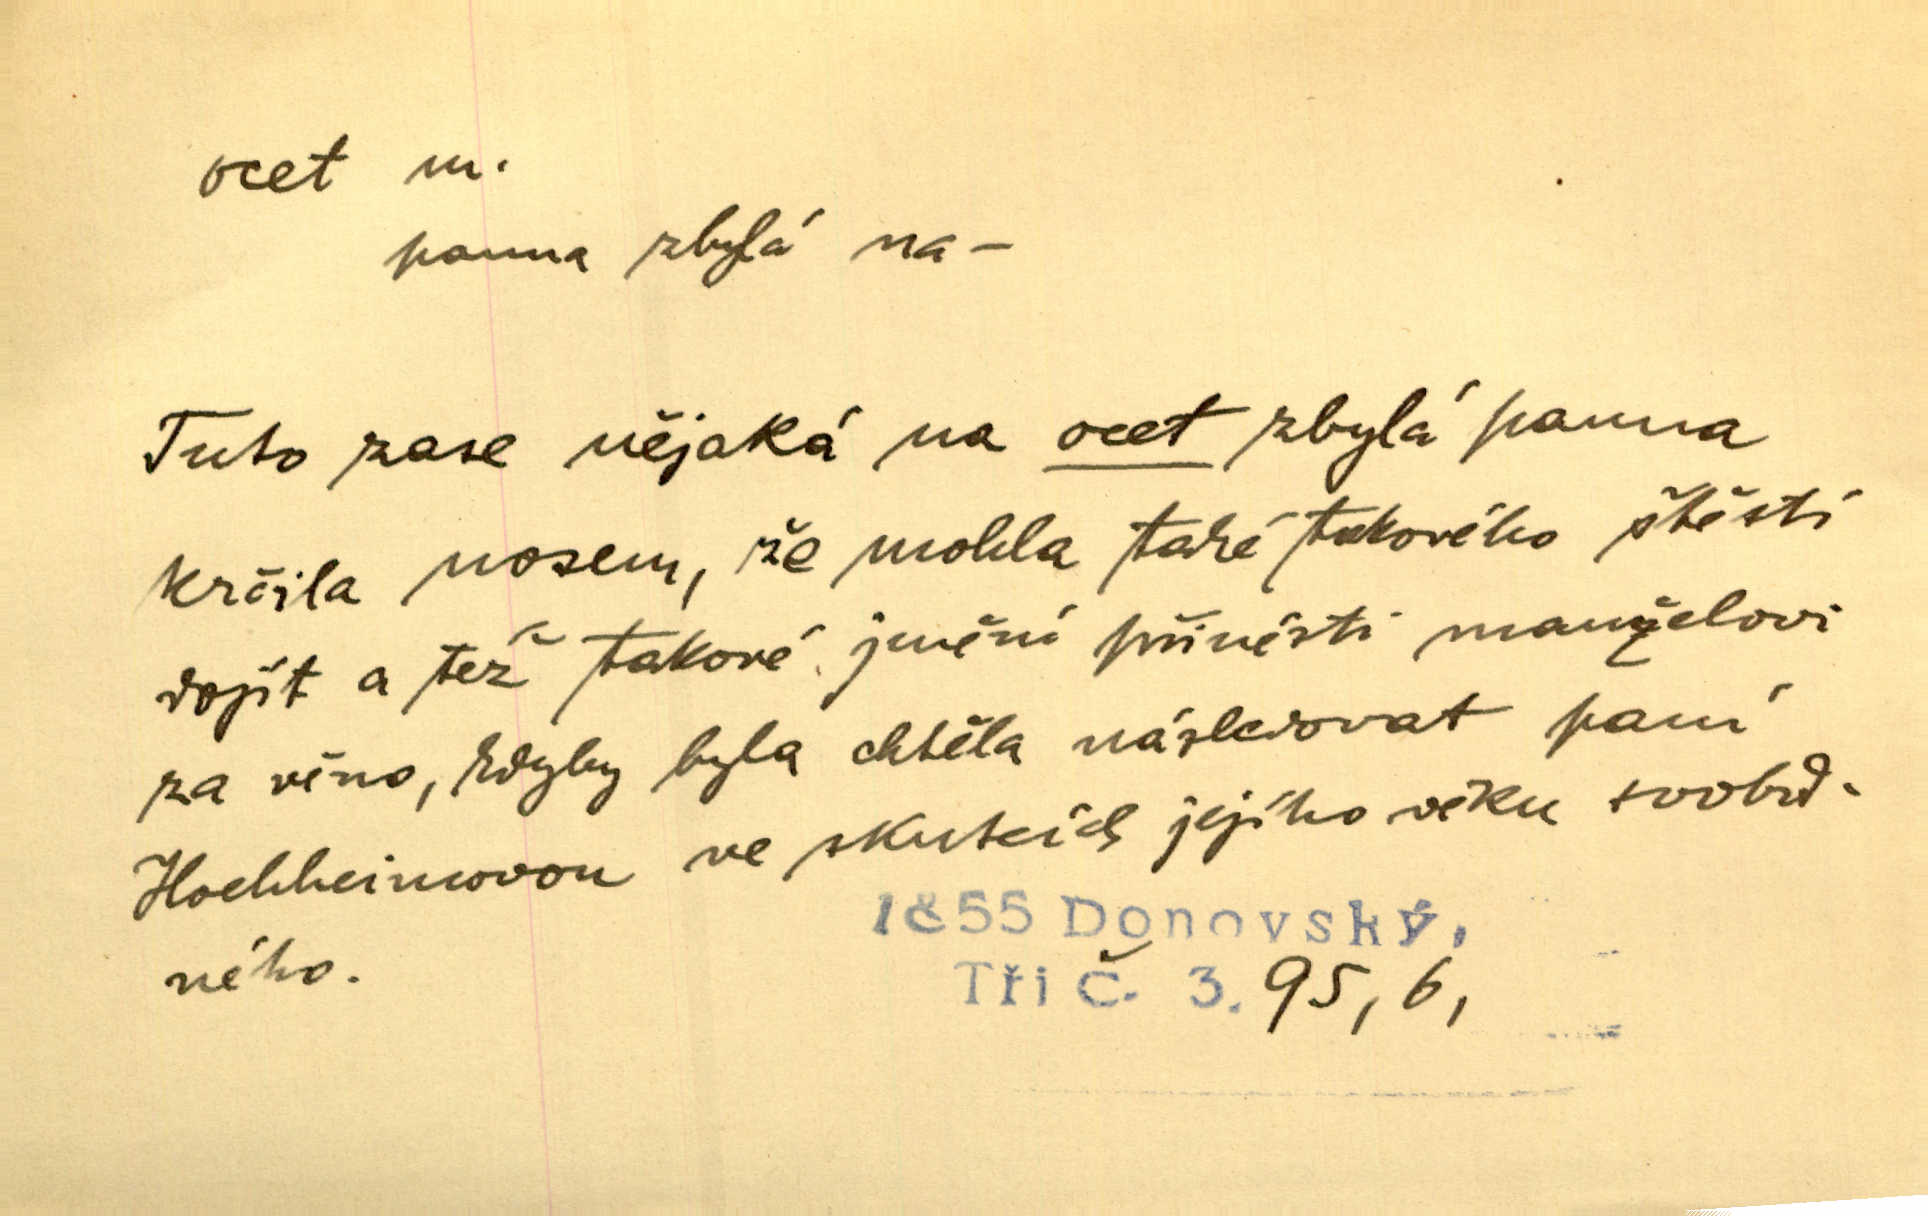 ocet m.
panna zbylá na –
Tuto zase nějaká na ocet zbylá panna
krčila nosem, že mohla také takového štěstí
dojít a též takové jmění přinésti manželovi
za věno, kdyby byla chtěla následovat paní
Hochheimovou ve skutcích jejího věku svobod-
ného.
1855 Donovský,
Tři č. 3. 95, 6,